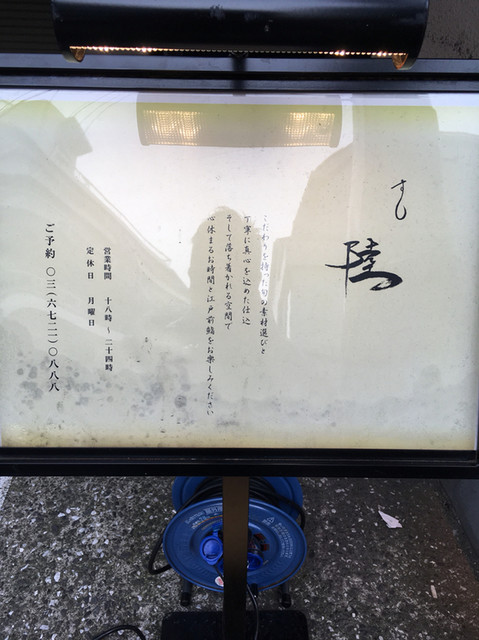 すし
陸
こだわりを持った旬の素材選びと
丁寧に真心を込めた仕込
そして落ち着かれる空間で
心休まるお時間と江戸前鮨をお楽しみください
営業時間　十八時〜二十四時
定休日　月曜日
ご予約　〇三(六七二二)〇八八八